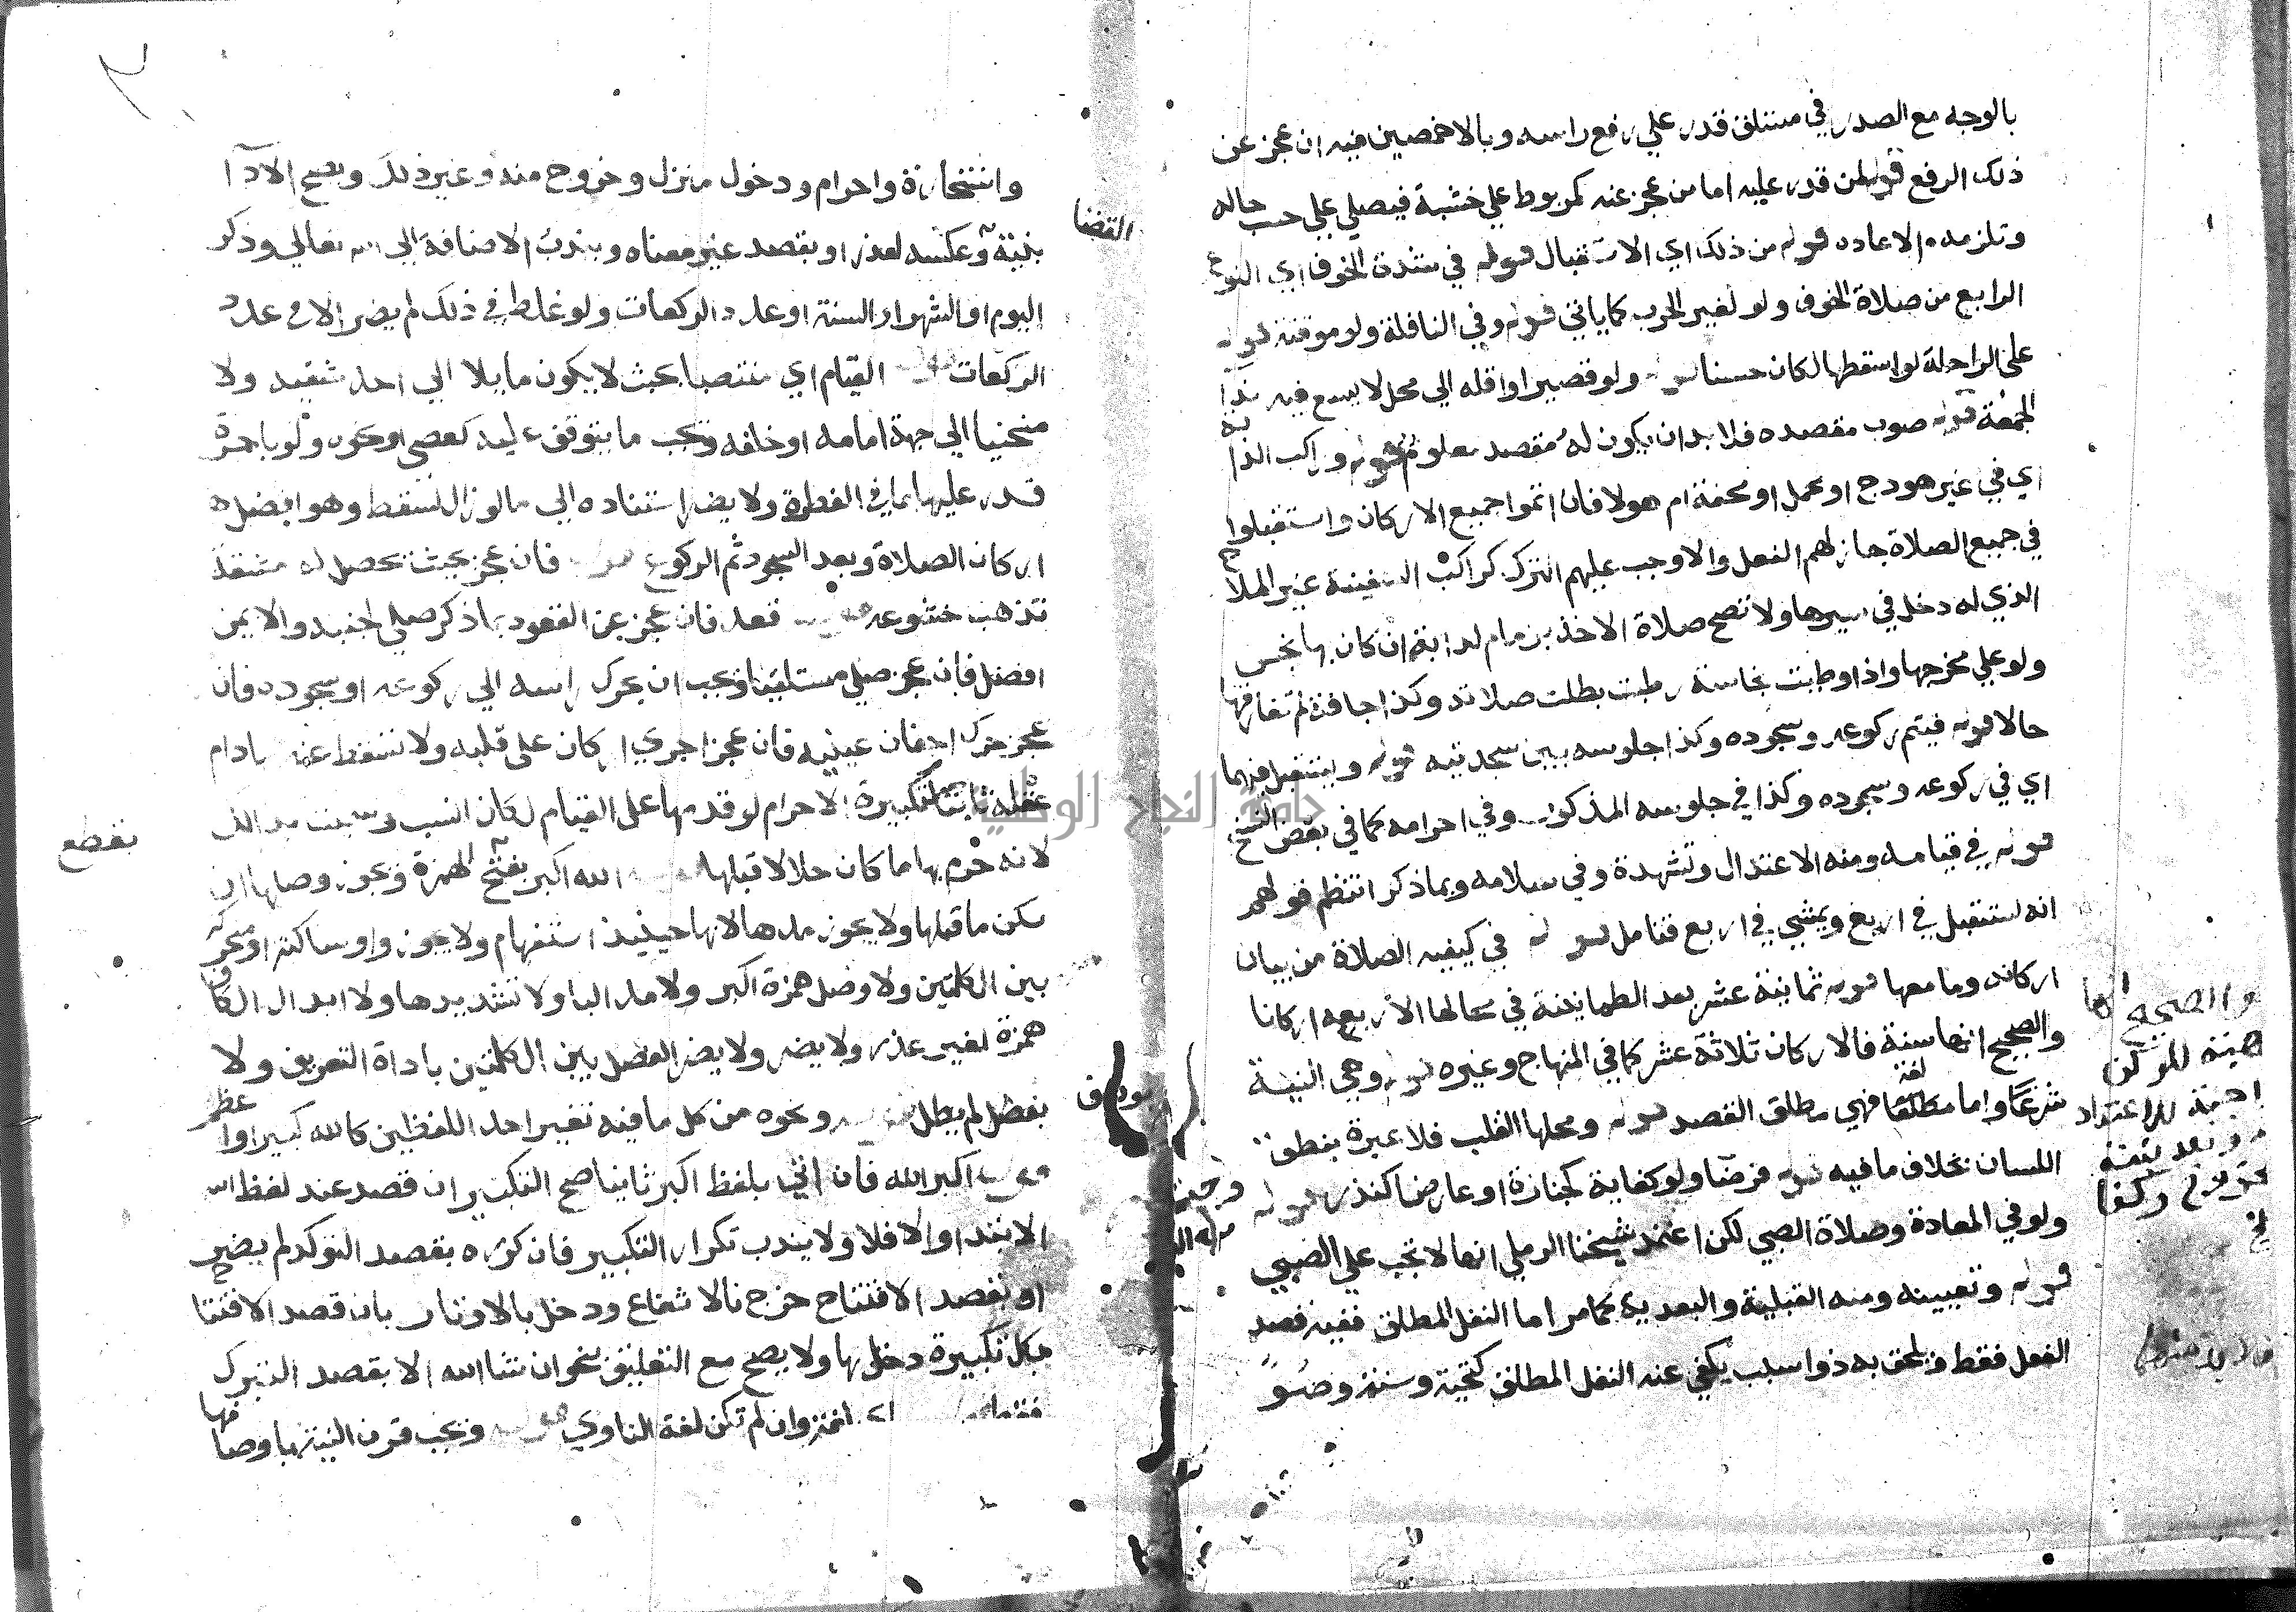 بالوجه مع الصدر في مستلق قدر علي رفع راسه وبالاخمصين فيه ان عجز عن
ذلك الرفع قوله لمن قدر عليه اما من عجز عنه كمربوط علي خشبة فيصلي علي حسب حاله
وتلزمه الاعاده قوله من ذلك اي الاستقبال قوله في شدة الخوف اي النوع
الرابع من صلاة الخوف ولو لغير الحرب كما ياتي قوله وفي النافلة ولو موقتة قوله
على الراحلة لو اسقطها لكان حسنا قوله ولو قصيرا واقله الي محل لا يسمع فيه ندا
الجمعة قوله صوب مقصده فلا بد ان يكون له مقصد معلوم قوله وراكب الدابة
اي في غير هودج او محمل او محفة ام هولا فان اتموا جميع الاركان واستقبلوا
في جميع الصلاة جاز لهم الفعل والا وجب عليهم الترك كراكب السفينة غير الملاح
الذي له دخل في سيرها ولا تصح صلاة الاخذ بزمام الدابة ان كان بها نجس
ولو علي مخرجها واذا وطيت نجاسة رطبت بطلت صلاته وكذا جافة لم تفارقها
حالا قوله فيتم ركوعه وسجوده وكذا جلوسه بين سجدتيه قوله ويستقبل فيهما
اي في ركوعه وسجوده وكذا في جلوسه المذكور وفي احرامه كما في بعض النسخ
قوله في قيامه ومنه الاعتدال وتشهدة وفي سلامه وبما ذكر انتظم قولهم
انه يستقبل في اربع ويمشي في اربع فتامل قوله في كيفيه الصلاة من بيان
اركانه وما معها قوله ثمانية عشر بعد الطمانينة في محالها الاربعه اركانا
والصحيح انها سنة فالاركان ثلاثة عشر كما في المنهاج وغيره قوله وهي النية
شرعا واما مطلقا لغة فهي مطلق القصد قوله ومحلها القلب فلا عبرة بنطق
اللسان بخلاف ما فيه قوله فرضا ولو كفاية كجنازة او عارضا كنذر قوله
ولو في المعادة وصلاة الصبي لكن اعتمد شيخنا الرملي انها لا تجب علي الصبي
قوله وتعيينه ومنه القبلية والبعدية كما مر اما النفل المطلق ففيه قصد
الفعل فقط ويلحق به ذو سبب يكفي عنه النفل المطلق كتحية وسنة وضو
والصحيح انها
هيئة للركن
القضا
واستخارة واحرام ودخول منزل وخروج منه وغير ذلك ويصح الادا
بنية وعكسه لعذر او بقصد غير معناه ويندب الاضافة الى الله تعالي وذكر
اليوم او الشهر او السنة او عدد الركعات ولو غلط في ذلك لم يضر الا في عدد
الركعات قوله القيام اي منتصبا بحيث لا يكون مايلا الي احد شقيه ولا
منحنيا الي جهة امامه او خلفه وتجب ما يتوقف عليه كعصي او نحوه ولو باجرة
قدر عليها بما في الفطرة ولا يضر استناده الي ما لو زال لسقط وهو افضل
اركان الصلاة وبعد السجود ثم الركوع قوله فان عجز بحيث تحصل له مشقة
تذهب خشوعه قوله قعد فان عجز عن القعود بما ذكر صلي لجنبه والايمن
افضل فان عجز صلي مستلقيا ويجب ان يحرك راسه الي ركوعه او سجوده فان
عجز حرك اجفان عينيه فان عجز اجري الاركان على قلبه ولا تسقط عنه مادام
عقله ثابتا تكبيرة الاحرام لو قدمها على القيام لكان انسب وسميت بذلك
لانه حرم بها ما كان حلالا قبلها قوله الله اكبر بفتح الهمزة ويجوز وصلها ان
سكن ما قبلها ولا يجوز مدها لانها حينيذ استفهام ولا يجوز واو ساكنة او متحركة
بين الكلمتين ولا وصل همزة اكبر ولا مد البا ولا تشديدها ولا ابدال الكاف
همزة لغير عذر ولا يضر ولا يضر الفصل بين الكلمتين باداة التعريف ولا
بفصل لم يطل قوله ونحوه من كل ما فيه تغيير احد اللفظين كالله كبير او اعظم
اكبر الله فان اتي بلفظ اكبر ثانيا صح التكبير ان قصد عند لفظ الله
الابتدا والا فلا ولا يندب تكرار التكبير فان كرره بقصد التوكد لم يضر
او بقصد الافتتاح خرج بالاشفاع ودخل بالاوتار بان قصد الافتتاح
بكل تكبيرة دخل بها ولا يصح مع التعليق بنحو ان شا الله الا بقصد التبرك
وان لم تكن لغة الناوي قوله ويجب قرن النية بها وصافها
تقطع
جامعة النجاح الوطنية